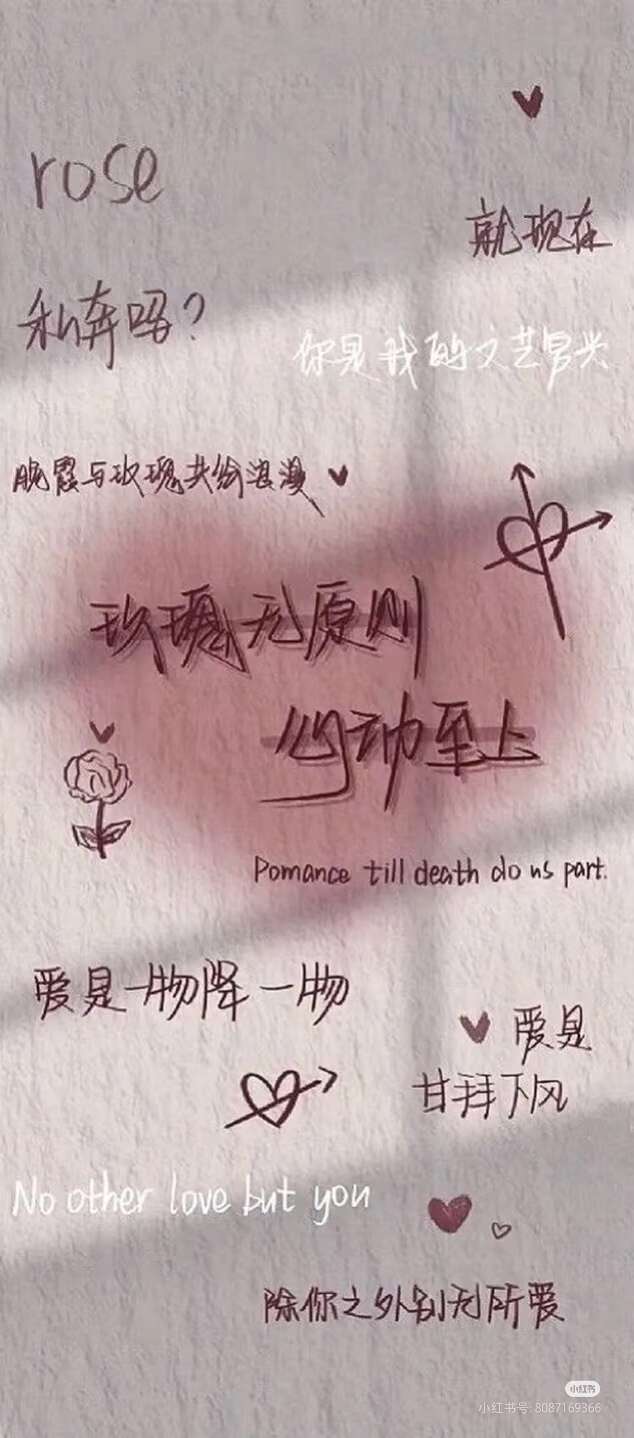 rose
就现在
私奔吗?
你是我的文艺复兴
晚霞与玫瑰共绘浪漫
玫瑰无原则
心动至上
Pomance till death do us part.
爱是一物降一物
爱是
甘拜下风
No other love but you
除你之外别无所爱
小红书
小红书号: 8087169366